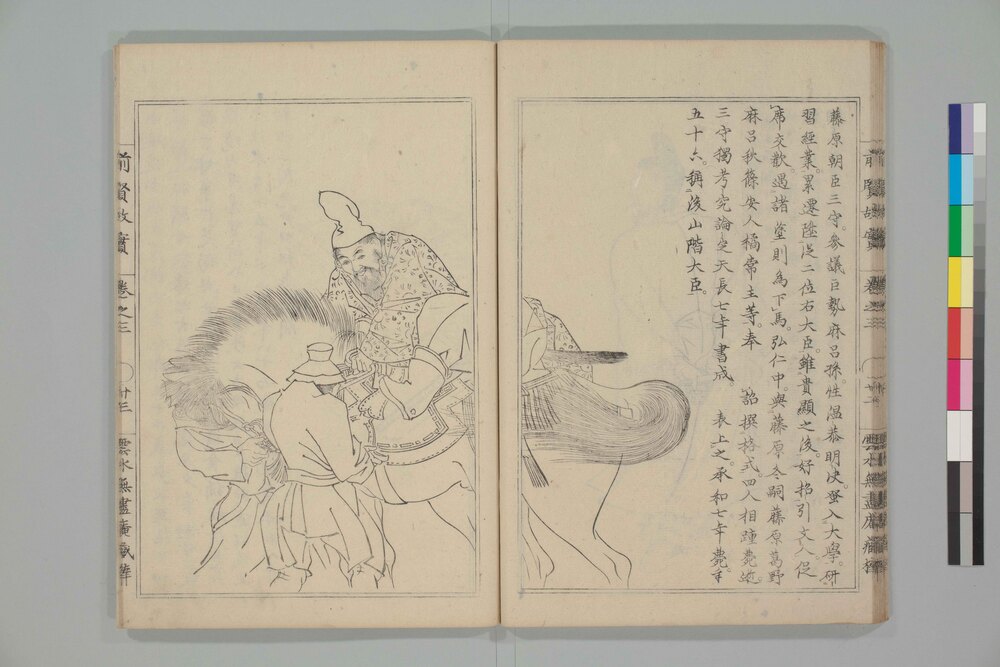 藤原朝臣三守。參議巨勢麻呂孫。性温恭明決。蚤入大學。研
習經業。累遷陞從二位右大臣。雖貴顯之後。好招引文人促
席交歡。遇諸塗則為下馬。弘仁中。與藤原冬嗣藤原葛野
麻呂秋篠安人橘常主等。奉 詔撰格式。四人相踵薨逝。
三守獨考究論定天長七年書成。 表上之。承和七年薨。年
五十六。稱後山階大臣。
前賢故實
卷之三
廿三
雲水無盡庵藏